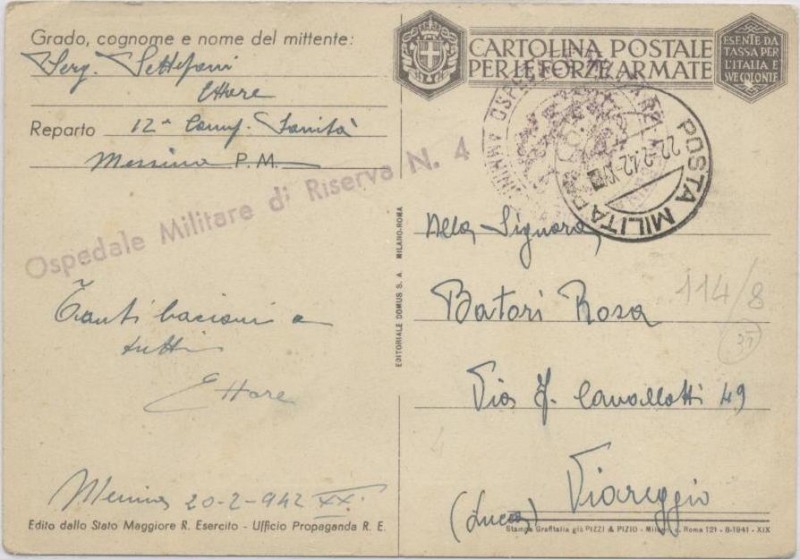 Grado, cognome e nome del mittente:
Serg. Settepani
Ettore
Reparto 12ª Comp. Sanità
Messina P. M.
Ospedale Militare di Riserva N. 4
Tanti bacioni a
tutti
Ettore
Messina 20-2-942 XX.
Edito dallo Stato Maggiore R. Esercito - Ufficio Propaganda R. E.
EDITORIALE DOMUS S. A. MILANO-ROMA
CARTOLINA POSTALE
PER LE FORZE ARMATE
ESENTE DA
TASSA PER
L'ITALIA E
SUE COLONIE
POSTA MILITA
22.2.42.XX
Alla Signora
Batori Rosa
Via F. Cavallotti 49
Viareggio
(Lucca)
114/8
35
4
Stampa Grafitalia già PIZZI & PIZIO - Milano e Roma 121 - 8-1941 - XIX